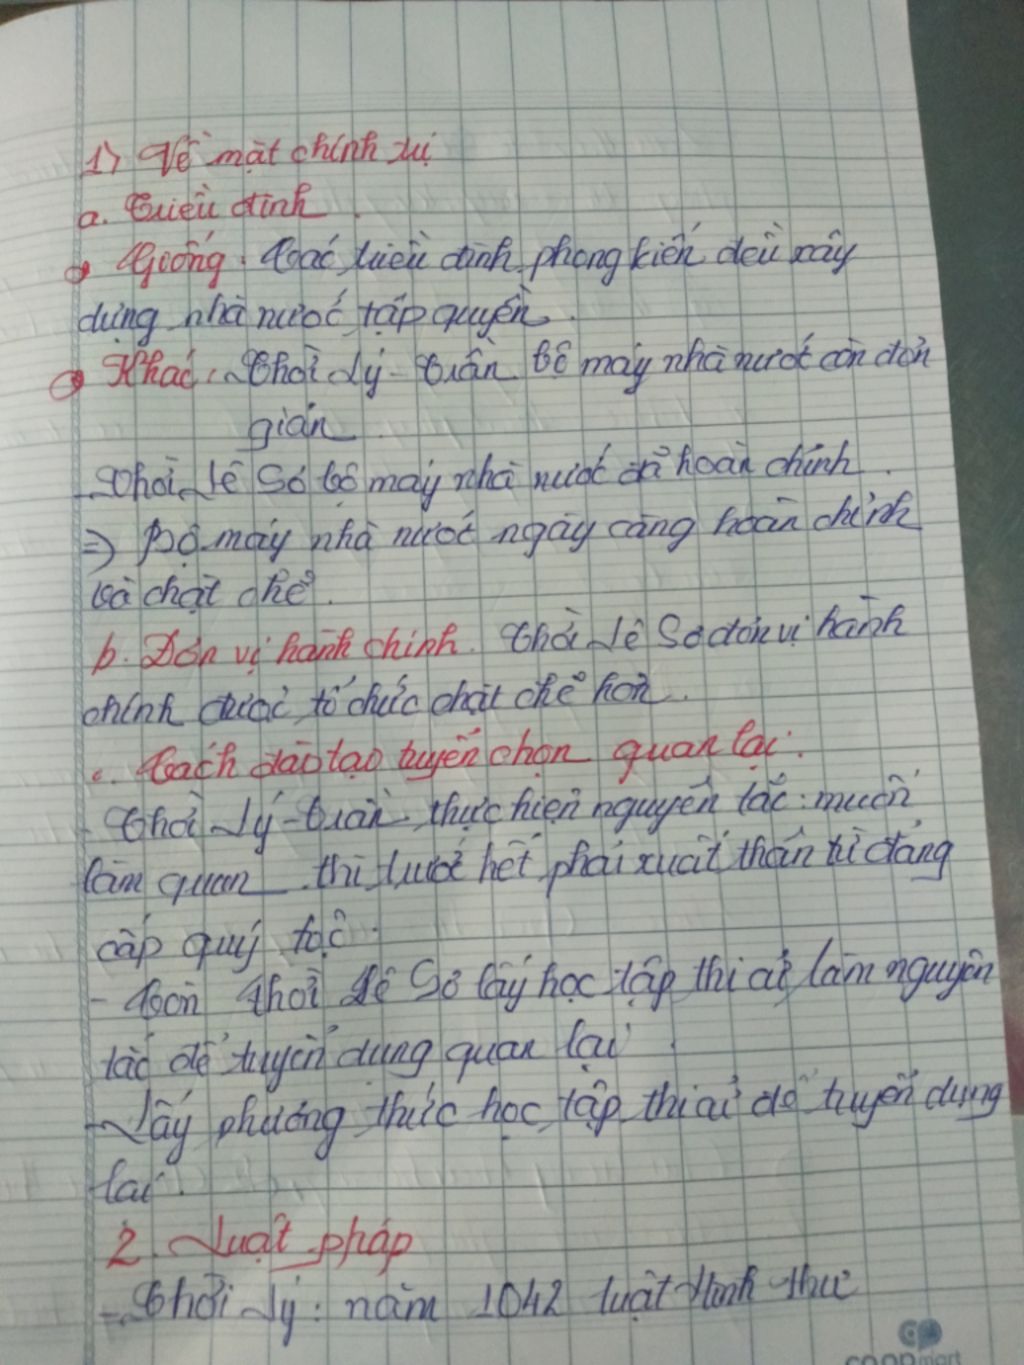 1) Về mặt chính trị
a. Triều đình.
Giống: Các triều đình phong kiến đều xây
dựng nhà nước tập quyền.
Khác: Thời Lý - Trần bộ máy nhà nước còn đơn
giản
- Thời Lê Sơ bộ máy nhà nước đã hoàn chỉnh.
=> Bộ máy nhà nước ngày càng hoàn chỉnh
và chặt chẽ.
b. Đơn vị hành chính. Thời Lê Sơ đơn vị hành
chính được tổ chức chặt chẽ hơn.
c. Cách đào tạo tuyển chọn quan lại.
- Thời Lý - Trần thực hiện nguyên tắc: muốn
làm quan thì trước hết phải xuất thân từ đẳng
cấp quý tộc.
- Còn thời Lê Sơ lấy học tập thi cử làm nguyên
tắc để tuyển dụng quan lại.
- Lấy phương thức học tập thi cử để tuyển dụng
lại.
2. Luật pháp
- Thời Lý: năm 1042 luật Hình thư
coopmart